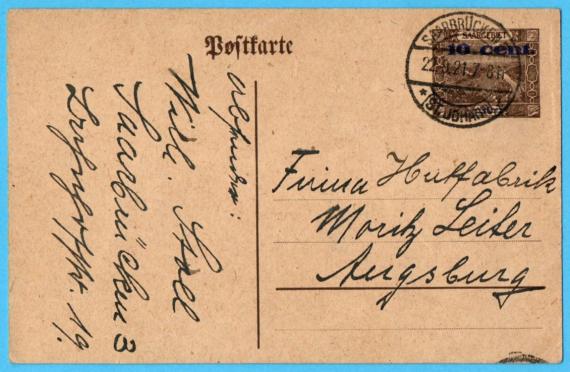 Postkarte
SAARBRÜCKEN
SAARGEBIET
10 cent.
22.9.21.7-8N
* (ST. JOHANN) *
Absender:
Will. Stoll
Saarbrücken 3
19.
Firma Hutfabrik
Moritz Leiter
Augsburg